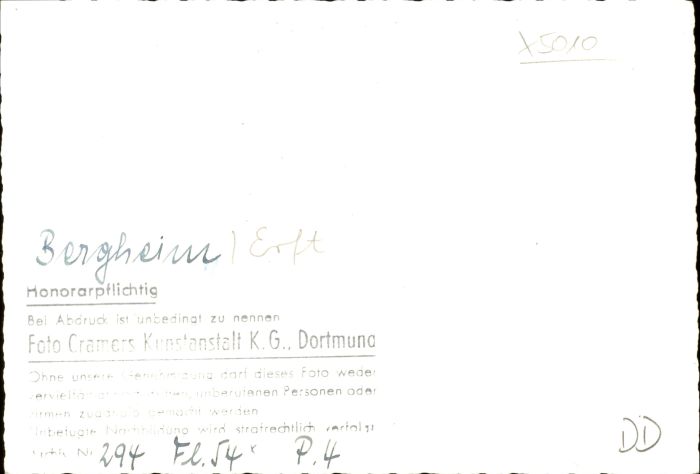 X5010
Bergheim / Erft
Honorarpflichtig
Bei Abdruck ist unbedingt zu nennen
Foto Cramers Kunstanstalt K.G., Dortmund
Ohne unsere Genehmigung darf dieses Foto weder
vervielfältigt noch unberufenen Personen oder
Firmen zugängig gemacht werden
Unbefugte Nachbildung wird strafrechtlich verfolgt
Archiv Nr. 294 Fl. 54 P. 4
DD